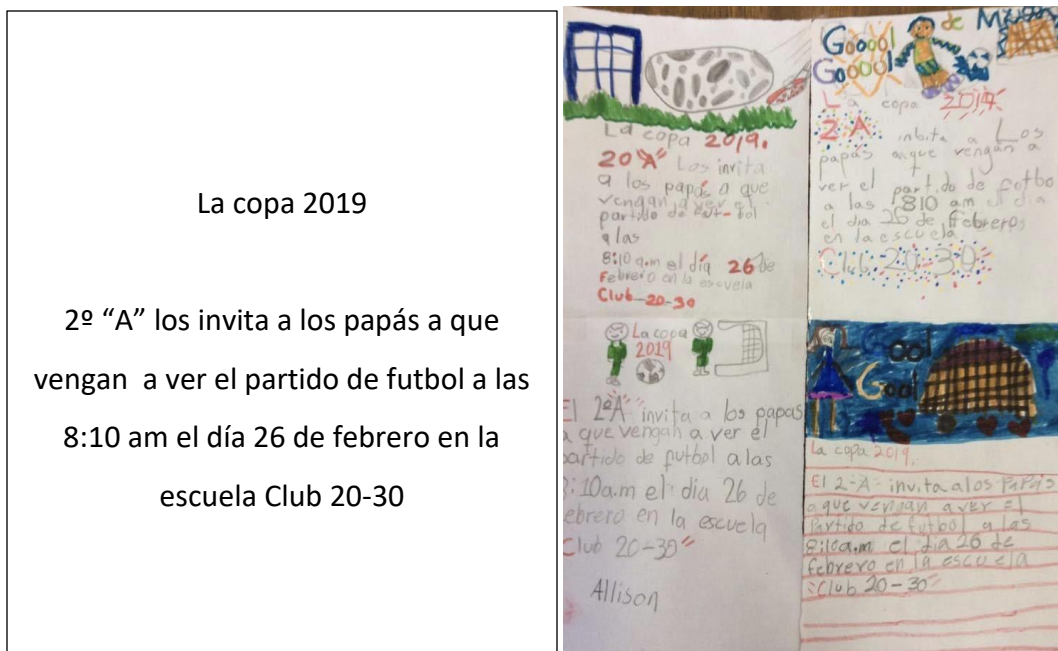 La copa 2019
2º “A” los invita a los papás a que
vengan a ver el partido de futbol a las
8:10 am el día 26 de febrero en la
escuela Club 20-30
La copa 2019.
20 "A" Los invita
a los papás a que
vengan a ver el
partido de fut-bol
a las
8:10 a.m el día 26 de
Febrero en la escuela
Club 20-30
Gooool de
Gooool
La copa 2019
2-A inbita a Los
papás aque vengan a
ver el partido de fotbo
a las 810 am el dia
el dia 26 de febrero
en la escuela
Club 20-30
La copa
2019
El 2ºA invita a los papas
a que vengan a ver el
partido de futbol a las
8:10a.m el dia 26 de
febrero en la escuela
Club 20-30"
Allison
Gool
Gool
La copa 2019.
El 2-A- invita a los PaPás
a que vengan a ver El
Partido de futbol a las
8:10a.m el dia 26 de
febrero en la escuela
"Club 20-30"